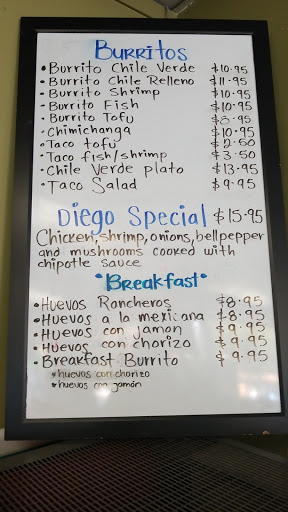 Burritos
• Burrito Chile Verde $10.95
• Burrito Chile Relleno $11.95
• Burrito Shrimp $10.95
• Burrito Fish $10.95
• Burrito Tofu $8.95
• Chimichanga $10.95
• Taco tofu $2.50
• Taco fish/shrimp $3.50
• Chile Verde plato $13.95
• Taco Salad $9.95
Diego Special $15.95
Chicken, shrimp, onions, bell pepper
and mushrooms cooked with
chipotle sauce
•Breakfast•
• Huevos Rancheros $8.95
• Huevos a la mexicana $8.95
• Huevos con jamon $9.95
• Huevos con chorizo $9.95
• Breakfast Burrito $9.95
* huevos con chorizo
* huevos con jamón